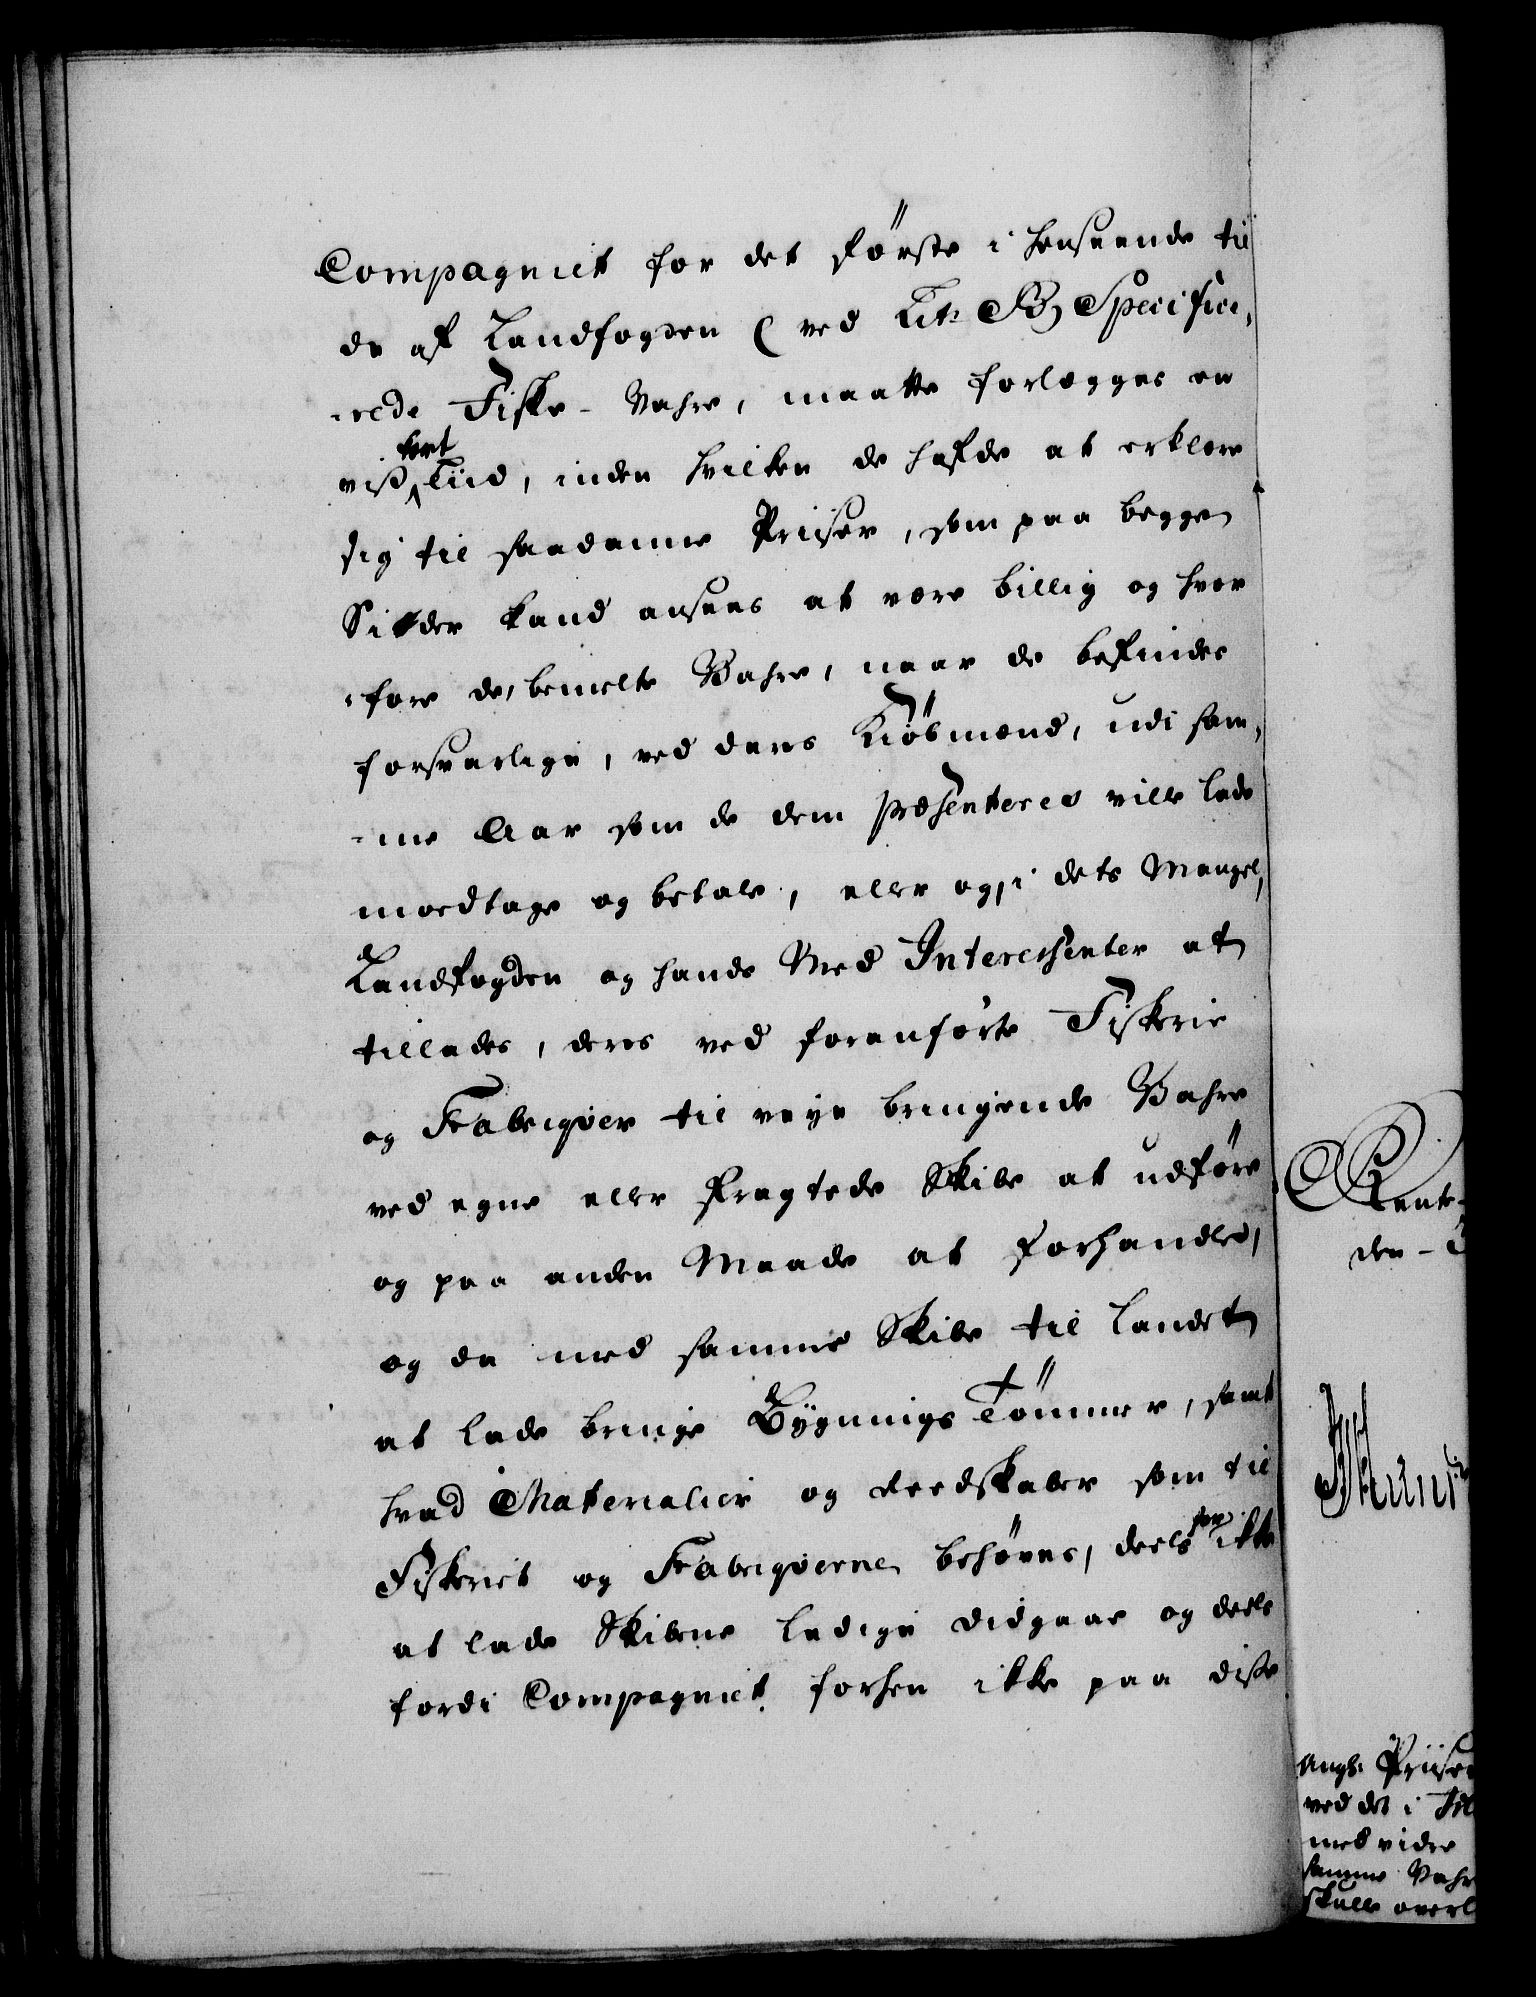 Compagniet for det første i henseende til
de af Landfogden (ved Lit: B) Specifice,
-rede Fiske-Vahre, maatte forlegges en
viss kort Tiid, inden hvilken de hafde at erklære
sig til saadanne Priiser, som paa begge
Sider kand ansees at være billig og hvor
-fore de, bemelte Vahre, naar de befindes
forsvarlige, ved deres Kiøbmænd, udi sam,
-me Aar som de dem præsenteres ville lade
modtage og betale, eller og, i dets Mangel,
Landfogden og hands Med Interessenter at
tillades, deres ved foranførte Fiskerie
og Fabriqver til veye bringende Vahre
ved egne eller fragtede Skibe at udføre
og paa anden Maade at forhandle,
og da med samme Skibe til Landet
at lade bringe Bygnings Tømmer, samt
hvad Materialier og Reedskaber som til
Fiskeriet og Fabriqverne behøves, deels for ikke
at lade Skibene ledige didgaae og deels
fordi Compagniet forhen ikke paa disse
Rente-
den -
Angl: Priiser
ved det i
med vidre
samme Vahr
skulle overl